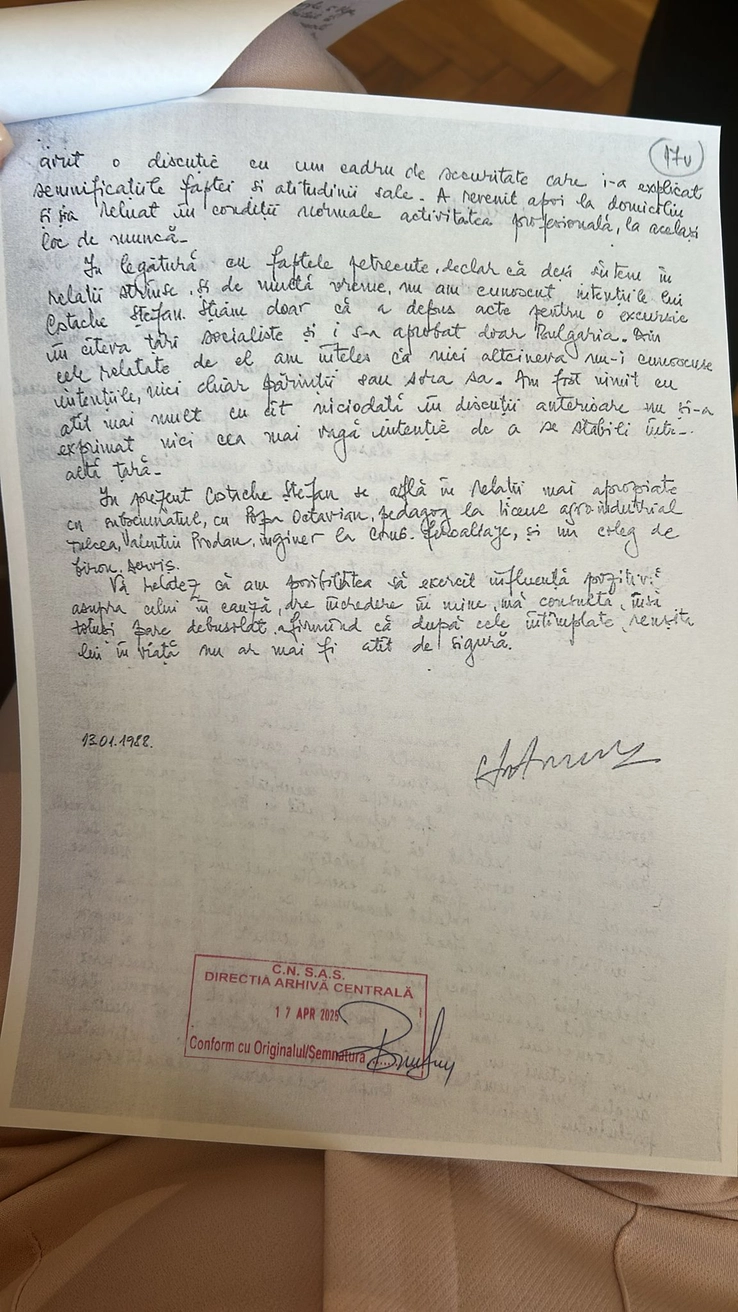 17v
avut o discuție cu un cadru de securitate care i-a explicat
semnificațiile faptei si atitudinii sale. A revenit apoi la domiciliu
și și-a reluat în condiții normale activitatea profesională, la același
loc de muncă.
In legătură cu faptele petrecute, declar că deși sîntem în
relații strînse și de multă vreme, nu am cunoscut intențiile lui
Costache Ștefan. Știam doar că a depus acte pentru o excursie
în cîteva țări socialiste și i s-a aprobat doar Bulgaria. Din
cele relatate de el am înțeles că nici altcineva nu-i cunoscuse
intențiile, nici chiar părinții sau sora sa. Am fost uimit cu
atît mai mult cu cît niciodată în discuții anterioare nu și-a
exprimat nici cea mai vagă intenție de a se stabili într-
altă țară.
In prezent Costache Ștefan se află în relații mai apropiate
cu subsemnatul, cu Popa Octavian, pedagog la liceul agroindustrial
Tulcea, Valentin Prodan, inginer la Comb. feroaliaje, și un coleg de
birou,
Vă relatez că am posibilitea să exercit influență pozitivă
asupra celui în cauză, are încredere în mine, mă consultă, însă
totuși pare debusolat, afirmînd că după cele întîmplate, reușita
lui în viață nu ar mai fi atît de sigură.
13.01.1988.
C.N. S.A.S.
DIRECTIA ARHIVĂ CENTRALĂ
17 APR 2025
Conform cu Originalul/Semnatura